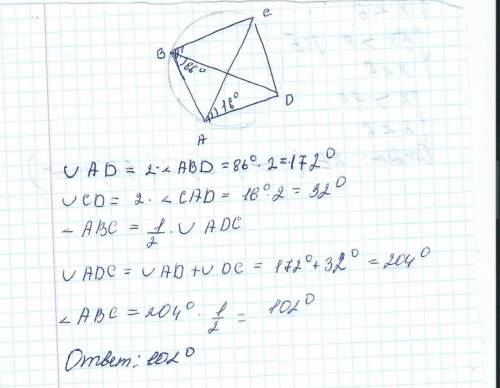 C
B
86°
16°
D
A
∪ AD = 2·∠ABD = 86°·2 = 172°
∪ CD = 2·∠CAD = 16°·2 = 32°
∠ABC = 1/2 · ∪ ADC
∪ ADC = ∪ AD + ∪ DC = 172° + 32° = 204°
∠ABC = 204° · 1/2 = 102°
Ответ: 102°